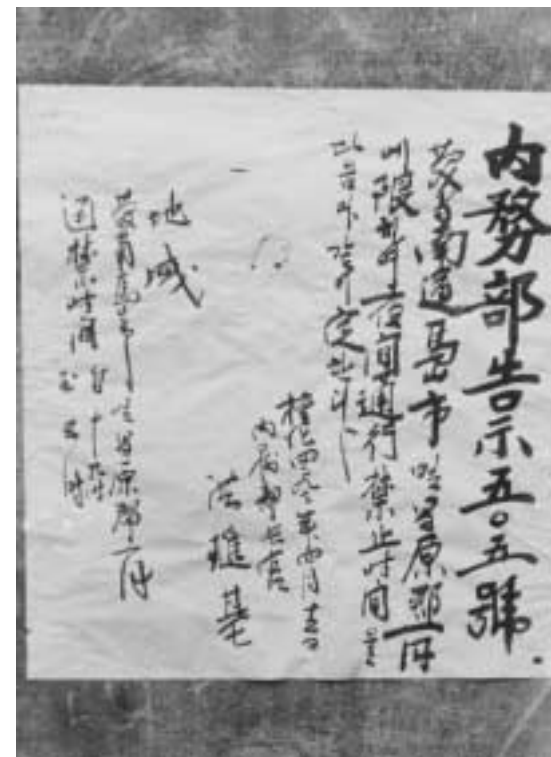 內務部告示五〇五號.
慶尙南道馬山市 및 昌原郡一円
에 限하여 夜間通行禁止時間을
다음과 같이 定한다
檀紀四二九三年四月十一日
內務部長官
洪璡基
地域
慶南馬山市 및 昌原郡一円
通禁時間 自十九時 至五時